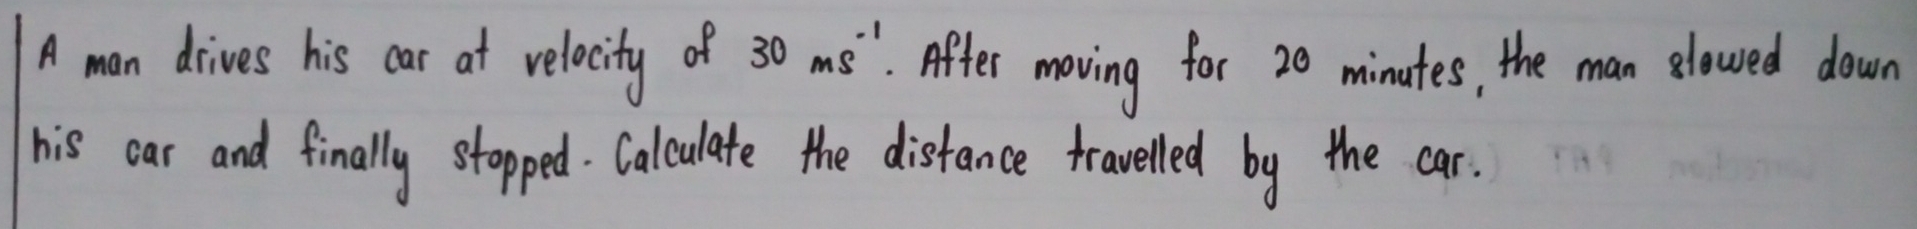 A man drives his car at velocity of 30 ms⁻¹. After moving for 20 minutes, the man slowed down
his car and finally stopped. Calculate the distance travelled by the car.